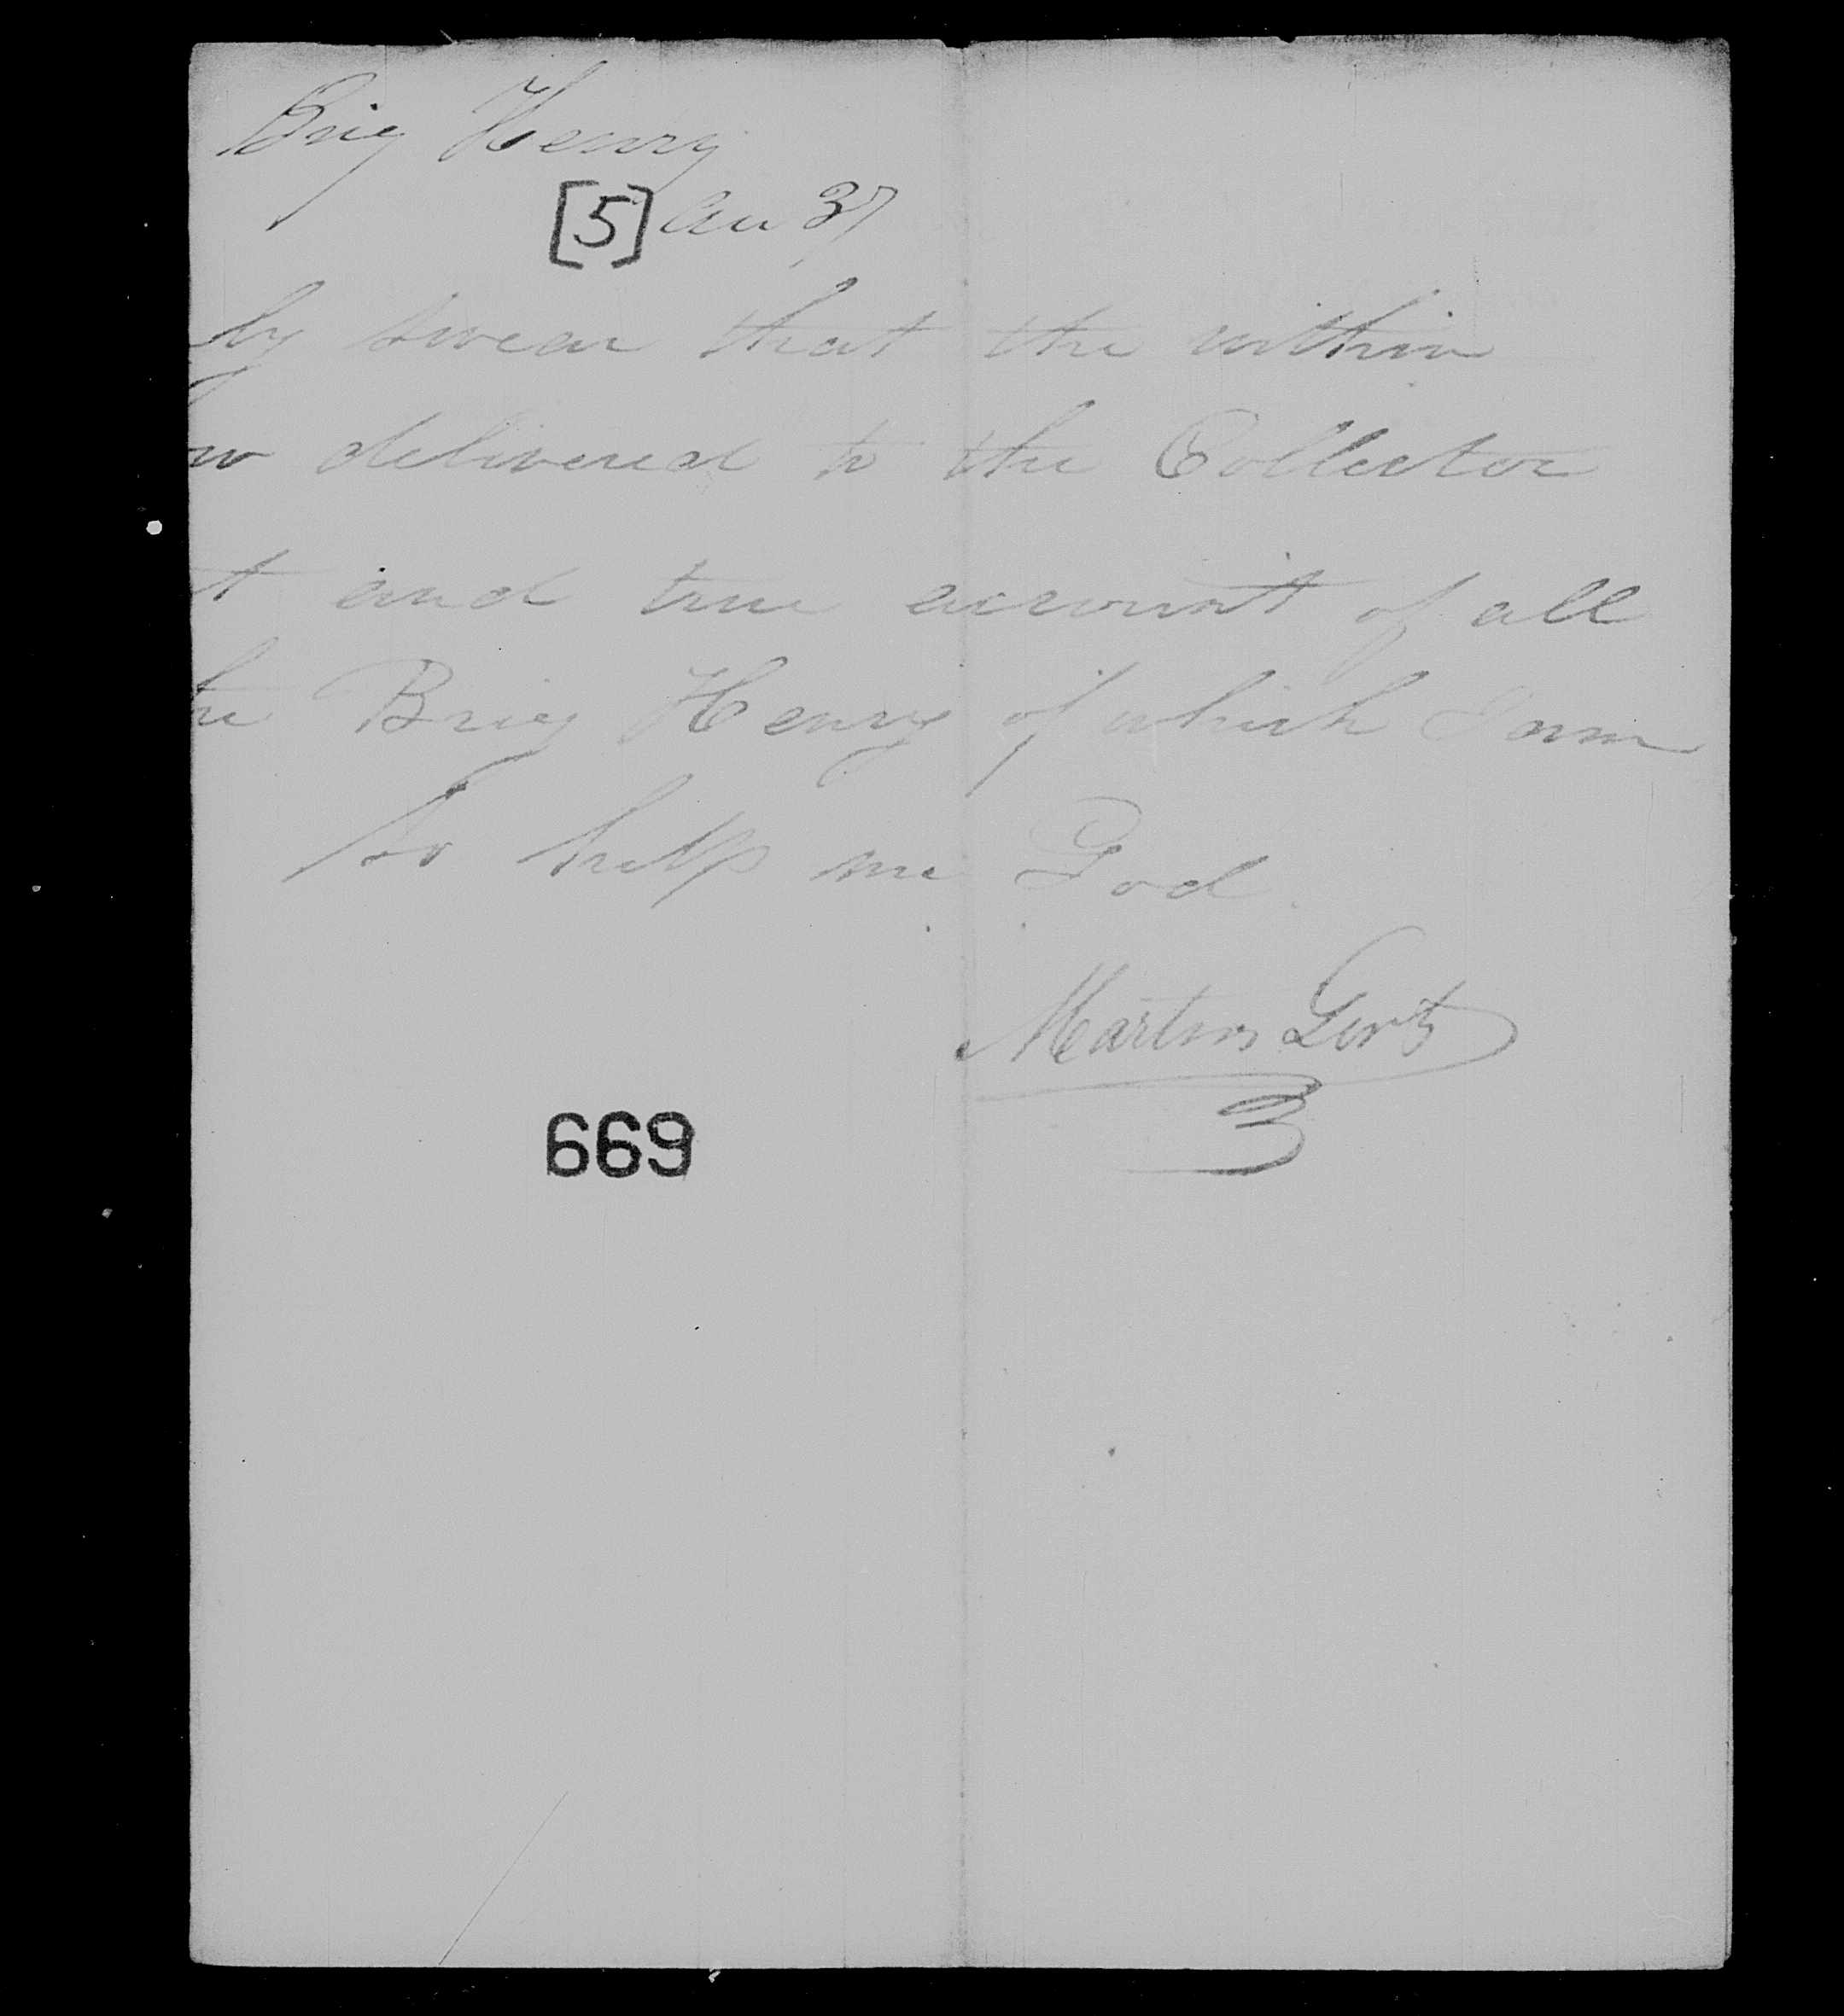 Brig Henry
[5] 37
by swear that the within
w delivered to the Collector
t and true account of all
he Brig Henry of which I am
So help me God.
Martin
699